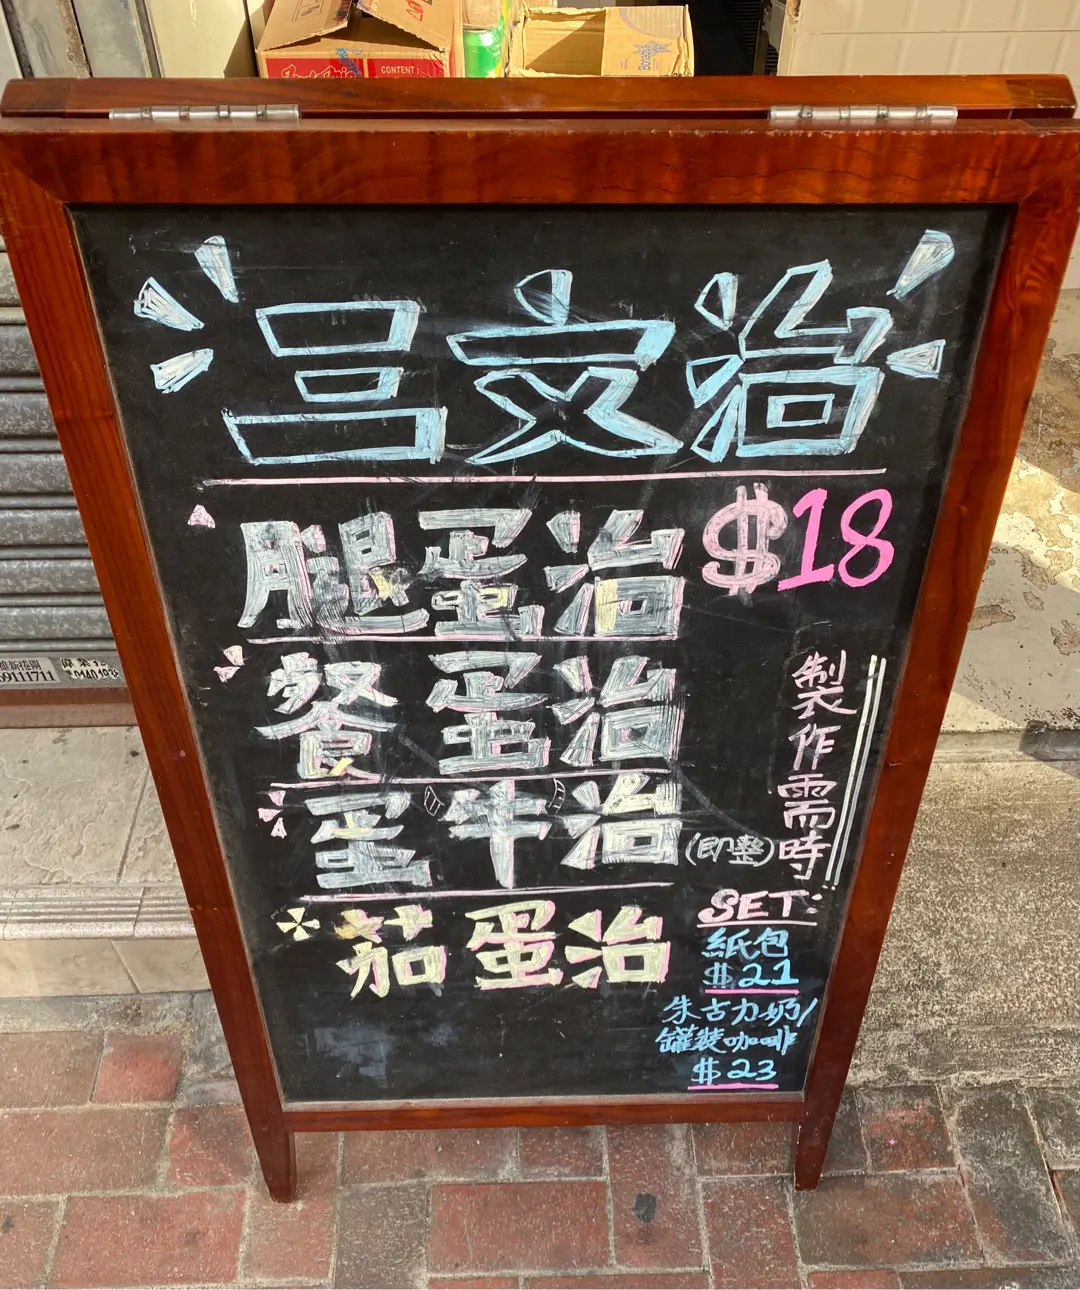 CONTENT :
三文治
腿蛋治 $18
餐蛋治
蛋牛治
茄蛋治
製作需時
(即整)
SET:
紙包
$21
朱古力奶/
罐裝咖啡
$23